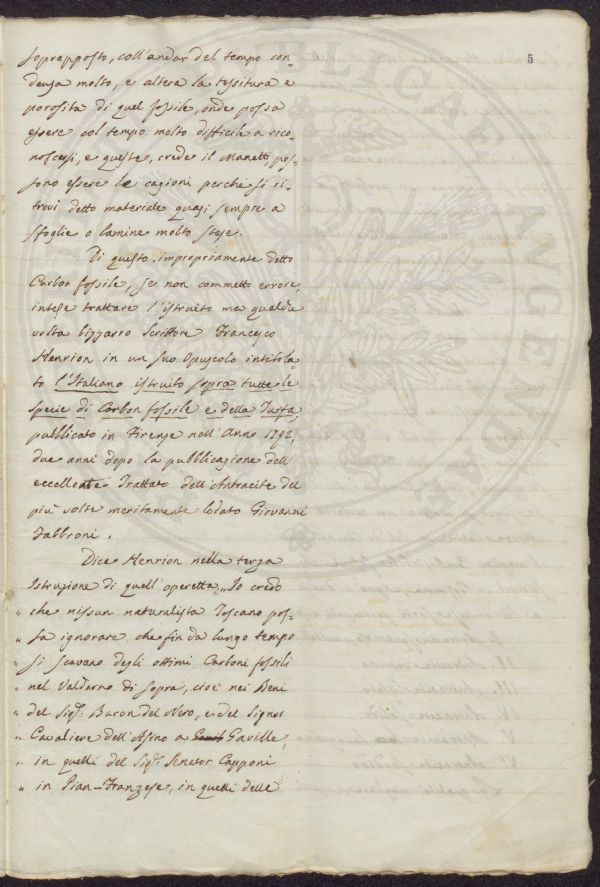 5
soprapposto, coll'andar del tempo con=
densa molto, e altera la tessitura e
porosità di quel fossile, onde possa
essere col tempo molto difficile a rico=
noscersi, e queste, crede il Manetti, pos=
sono essere le cagioni perchè si ri=
trovi detto materiale quasi sempre a
sfoglie o lamine molto stese.
Di questo, impropriamente detto
Carbon fossile, se non commetto errore,
intese trattare l'istruito ma qualche
volta bizzarro Scrittore Francesco
Henrion in un suo Opuscolo intitola=
to l'Italiano istruito sopra tutte le
specie di Carbon fossile e della Torba,
pubblicato in Firenze nell'Anno 1792,
due anni dopo la pubblicazione dell'
eccellente Trattato dell'Antracite del
più volte meritamente lodato Giovanni
Fabbroni.
Dice Henrion nella terza
Istruzione di quell'operetta „Io credo
„ che nissun naturalista Toscano pos=
„ sa ignorare che fin da lungo tempo
„ si scavano degli ottimi Carboni fossili
„ nel Valdarno di sopra, cioè nei Beni
„ del Sigr. Baron del Nero, e del Signor
„ Cavaliere dell'Asino a Gaville,
„ in quelli del Sigr. Senator Capponi
„ in Pian=Franzese, in quelli delle